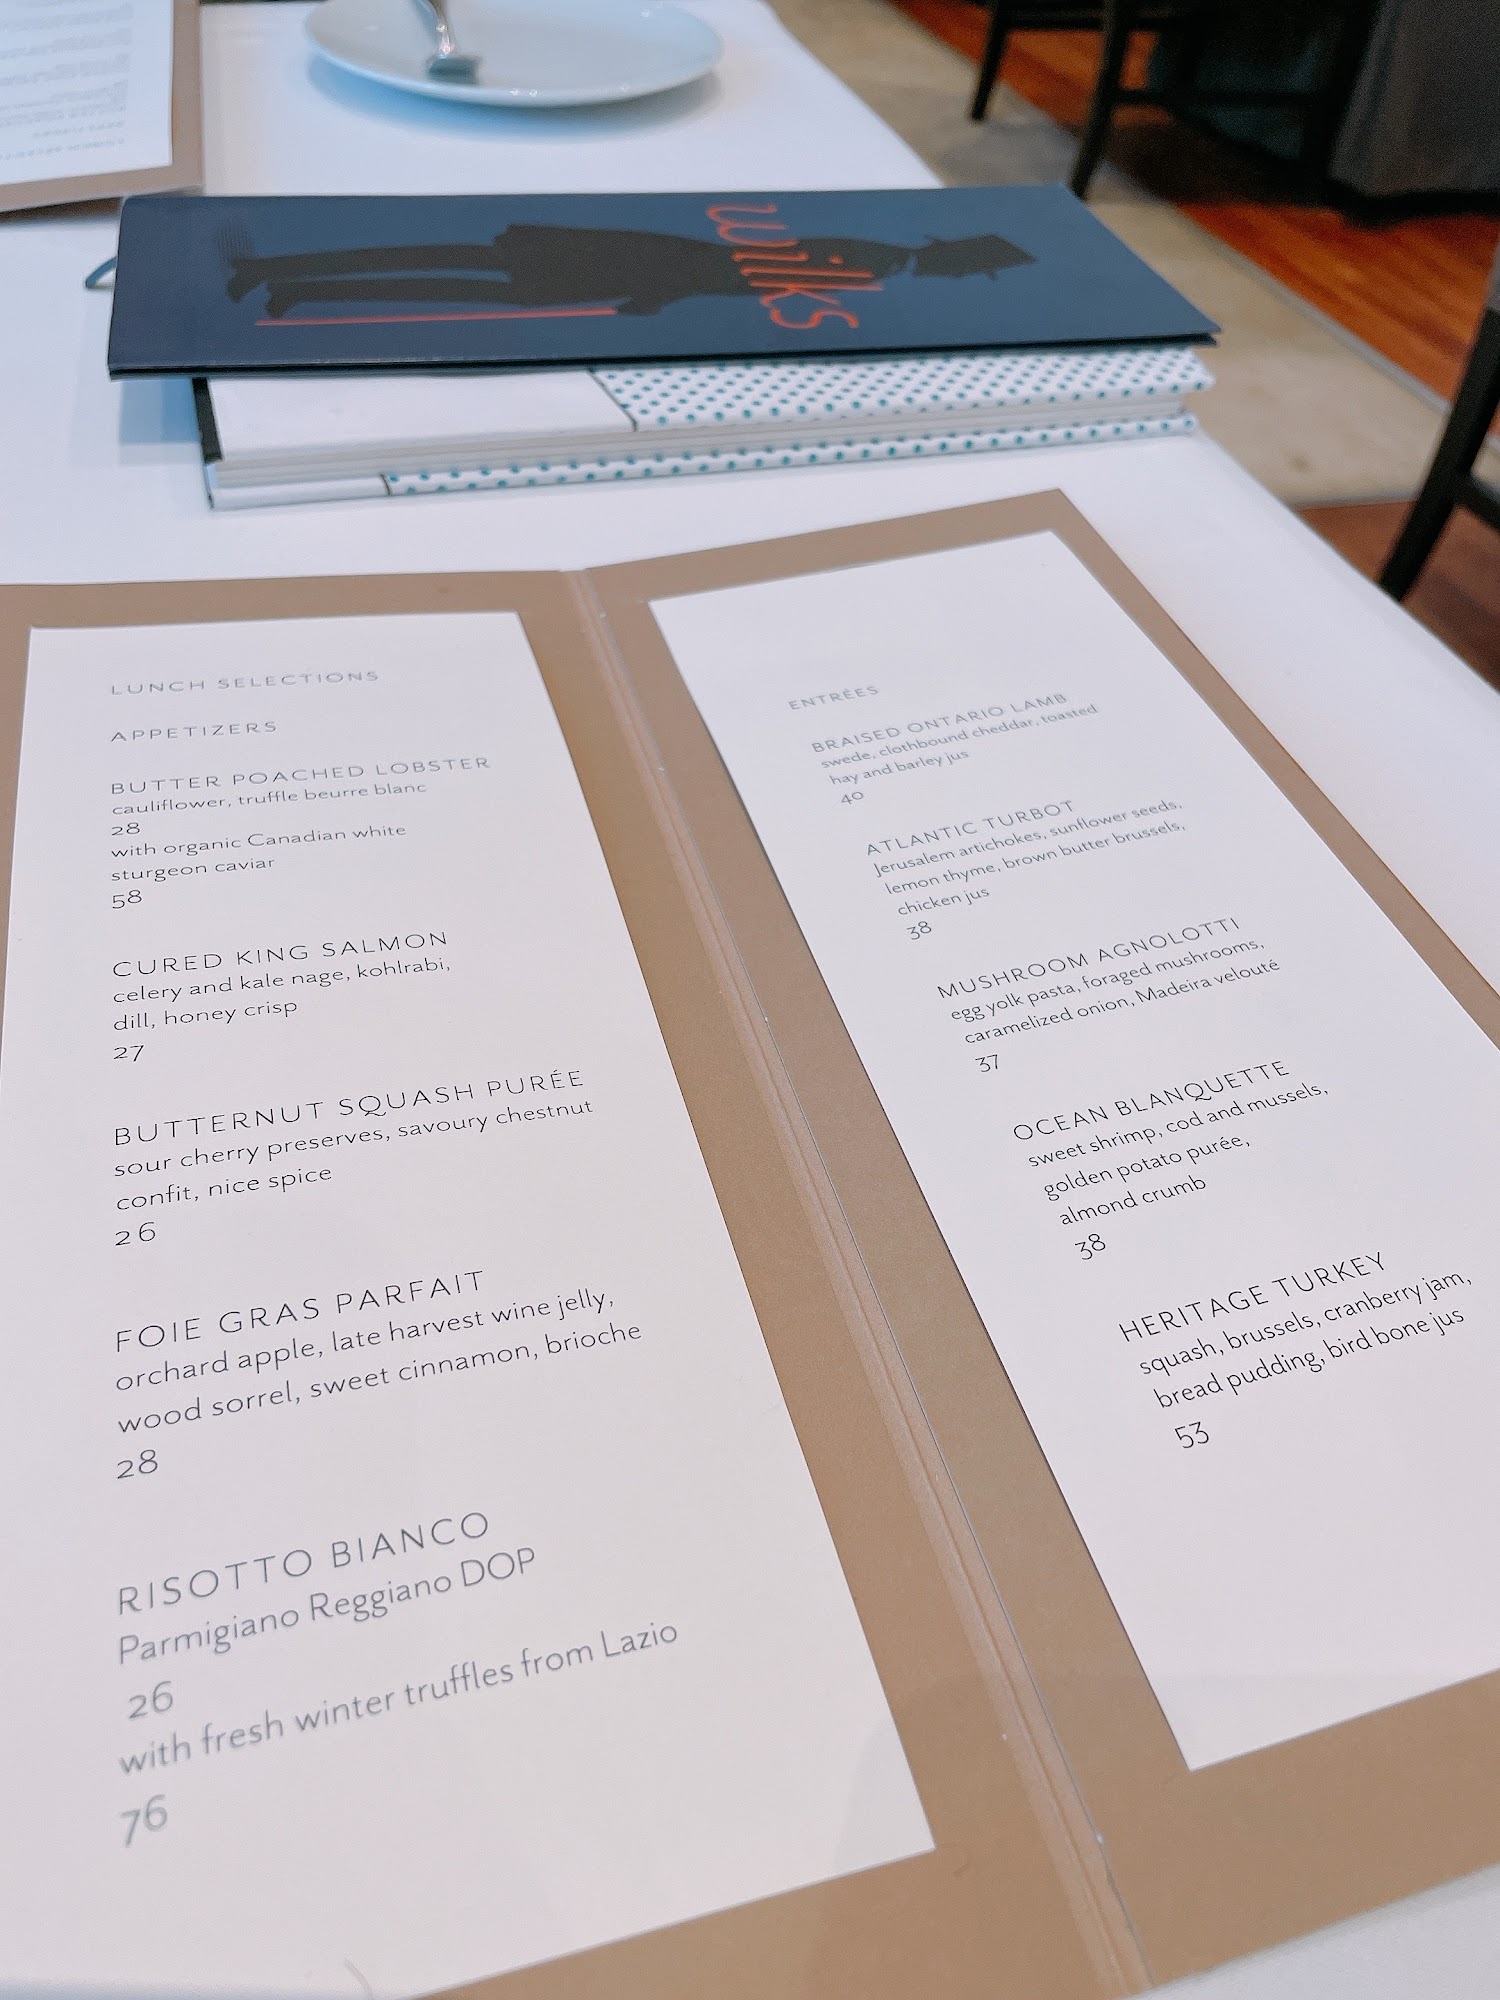 wilks
LUNCH SELECTIONS
APPETIZERS
BUTTER POACHED LOBSTER
cauliflower, truffle beurre blanc
28
with organic Canadian white
sturgeon caviar
58
CURED KING SALMON
celery and kale nage, kohlrabi,
dill, honey crisp
27
BUTTERNUT SQUASH PURÉE
sour cherry preserves, savoury chestnut
confit, nice spice
26
FOIE GRAS PARFAIT
orchard apple, late harvest wine jelly,
wood sorrel, sweet cinnamon, brioche
28
RISOTTO BIANCO
Parmigiano Reggiano DOP
26
with fresh winter truffles from Lazio
76
ENTRÉES
BRAISED ONTARIO LAMB
swede, clothbound cheddar, toasted
hay and barley jus
40
ATLANTIC TURBOT
Jerusalem artichokes, sunflower seeds,
lemon thyme, brown butter brussels,
chicken jus
38
MUSHROOM AGNOLOTTI
egg yolk pasta, foraged mushrooms,
caramelized onion, Madeira velouté
37
OCEAN BLANQUETTE
sweet shrimp, cod and mussels,
golden potato purée,
almond crumb
38
HERITAGE TURKEY
squash, brussels, cranberry jam,
bread pudding, bird bone jus
53